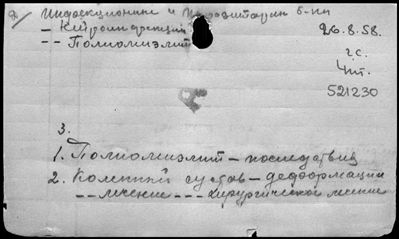 Инфекционные и паразитарн. б-ни
– Нейроинфекции
– – Полиомиэлит
26.8.58.
г.с.
Чит.
521230
3.
1. Полиомиэлит – последствия
2. Коленный сустав – деформации
– – лечение – – – хирургическое лечение